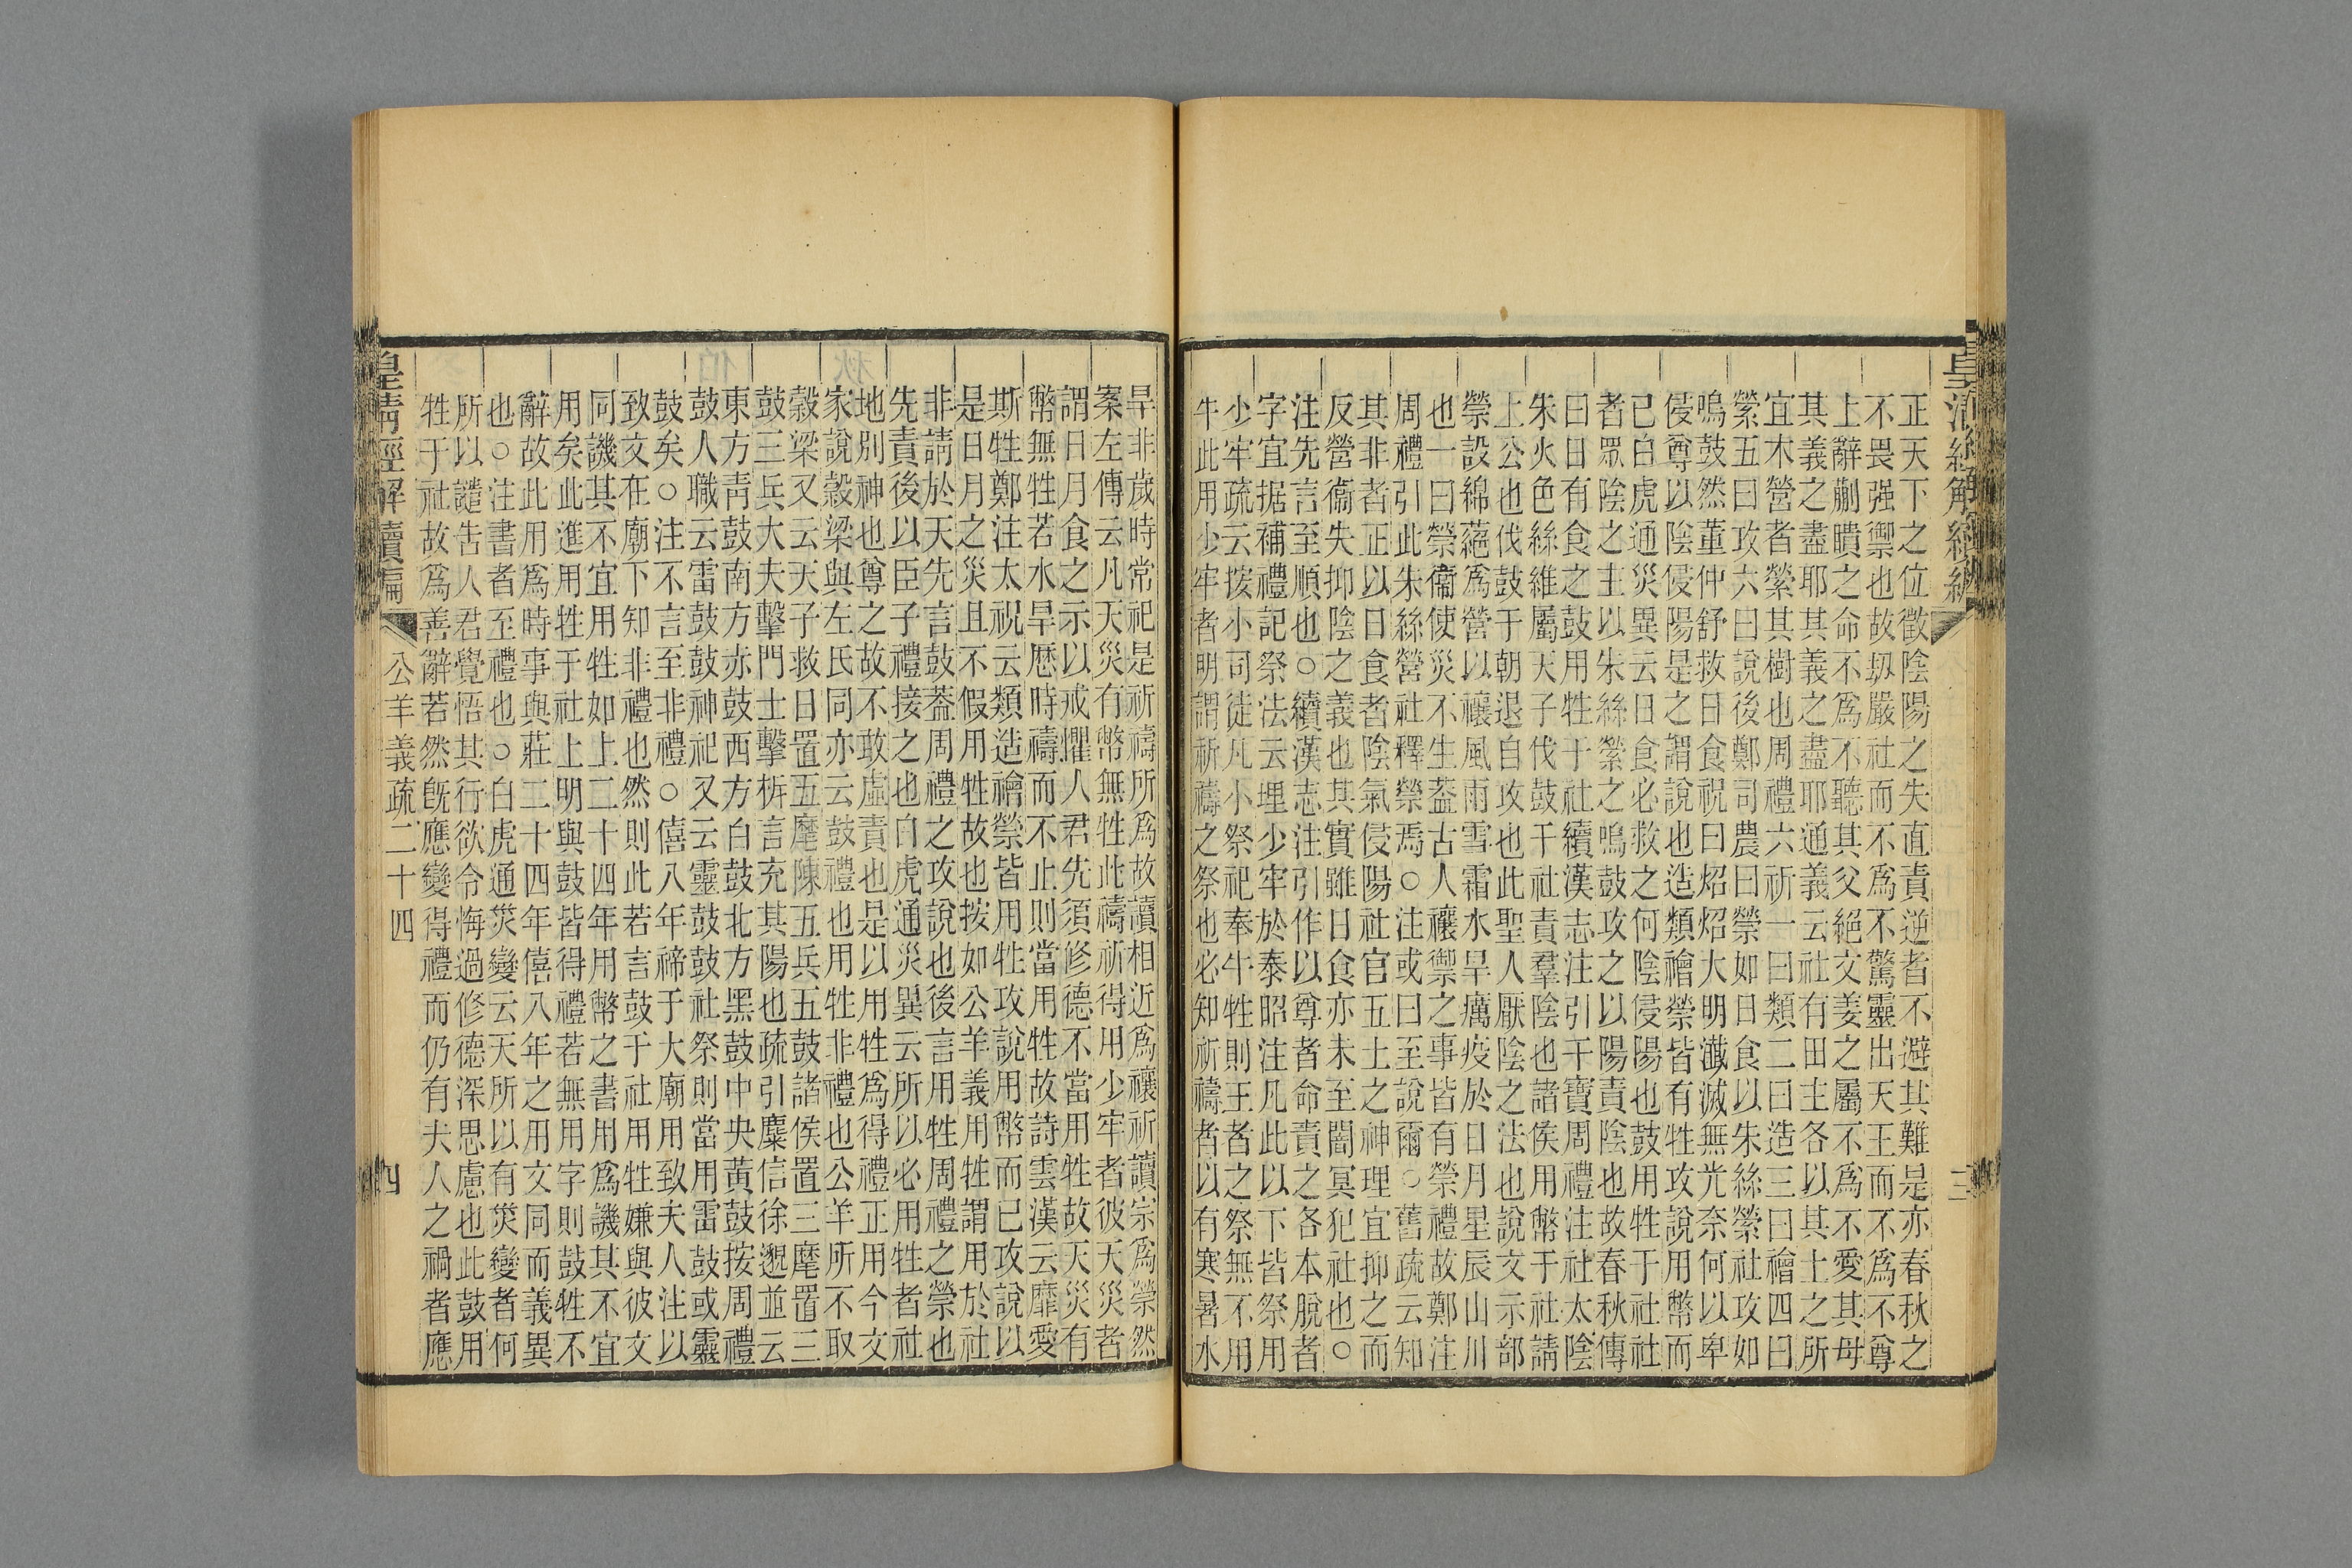 皇清經解續編　三
正天下之位徵陰陽之失直責逆者不避其難是亦春秋之
不畏强禦也故刼嚴社而不爲不驚靈出天王而不爲不尊
上辭蒯聵之命不爲不聽其父絕文姜之屬不爲不愛其母
其義之盡耶其義之盡耶通義云社有田主各以其土之所
宜木營者縈其樹也周禮六祈一曰類二曰造三曰禬四曰
禜五曰攻六曰說後鄭司農曰禜如日食以朱絲禜社攻如
鳴鼓然董仲舒救日食祝曰炤炤大明瀸滅無光奈何以卑
侵尊以陰侵陽是之謂說也造類禬禜皆有牲攻說用幣而
已白虎通災異云日食必救之何陰侵陽也鼓用牲于社社
者眾陰之主以朱絲縈之鳴鼓攻之以陽責陰也故春秋傳
曰日有食之鼓用牲于社續漢志注引干寶周禮注社太陰
朱火色絲維屬天子伐鼓于社責羣陰也諸侯用幣于社請
上公也伐鼓于朝退自攻也此聖人厭陰之法也說文示部
禜設綿蕝爲營以禳風雨雪霜水旱癘疫於日月星辰山川
也一曰禜衞使災不生葢古人禳禦之事皆有禜禮故鄭注
周禮引此朱絲營社釋禜焉○注或曰至說爾○舊疏云知
其非者正以日食者陰氣侵陽社官五土之神理宜抑之而
反營衞失抑陰之義也其實雖日食亦未至闇冥犯社也○
注先言至順也○續漢志注引作以尊者命責之各本脫者
字宜据補禮記祭法云埋少牢於泰昭注凡此以下皆祭用
少牢疏云按小司徒凡小祭祀奉牛牲則王者之祭無不用
牛此用少牢者明謂祈禱之祭也必知祈禱者以有寒暑水
旱非歲時常祀是祈禱所爲故讀相近爲禳祈讀宗爲禜然
案左傳云凡天災有幣無牲此禱祈得用少牢者彼天災者
謂日月食之示以戒懼人君先須修德不當用牲故天災有
幣無牲若水旱歴時禱而不止則當用牲故詩雲漢云靡愛
斯牲鄭注太祝云類造禬禜皆用牲攻說用幣而已攻說以
是日月之災且不假用牲故也按如公羊義用牲謂用於社
非請於天先言鼓葢周禮之攻說也後言用牲周禮之禜也
先責後以臣子禮接之也白虎通災異云所以必用牲者社
地別神也尊之故不敢虛責也是以用牲爲得禮正用今文
家說穀梁與左氏同亦云鼓禮也用牲非禮也公羊所不取
穀梁又云天子救日置五麾陳五兵五鼓諸侯置三麾置三
鼓三兵大夫擊門士擊柝言充其陽也疏引麋信徐邈並云
東方靑鼓南方赤鼓西方白鼓北方黑鼓中央黃鼓按周禮
鼓人職云雷鼓鼓神祀又云靈鼓鼓社祭則當用雷鼓或靈
鼓矣○注不言至非禮○僖八年禘于大廟用致夫人注以
致文在廟下知非禮也然則此若言鼓于社用牲嫌與彼文
同譏其不宜用牲如上二十四年用幣之書用爲譏其不宜
用矣此進用牲于社上明與鼓皆得禮若無用字則鼓牲不
辭故此用爲時事與莊二十四年僖八年之用文同而義異
也○注書者至禮也○白虎通災變云天所以有災變者何
所以譴吿人君覺悟其行欲令悔過修德深思慮也此鼓用
牲于社故爲善辭若然旣應變得禮而仍有夫人之禍者應
皇清經解續編　公羊義疏二十四　四